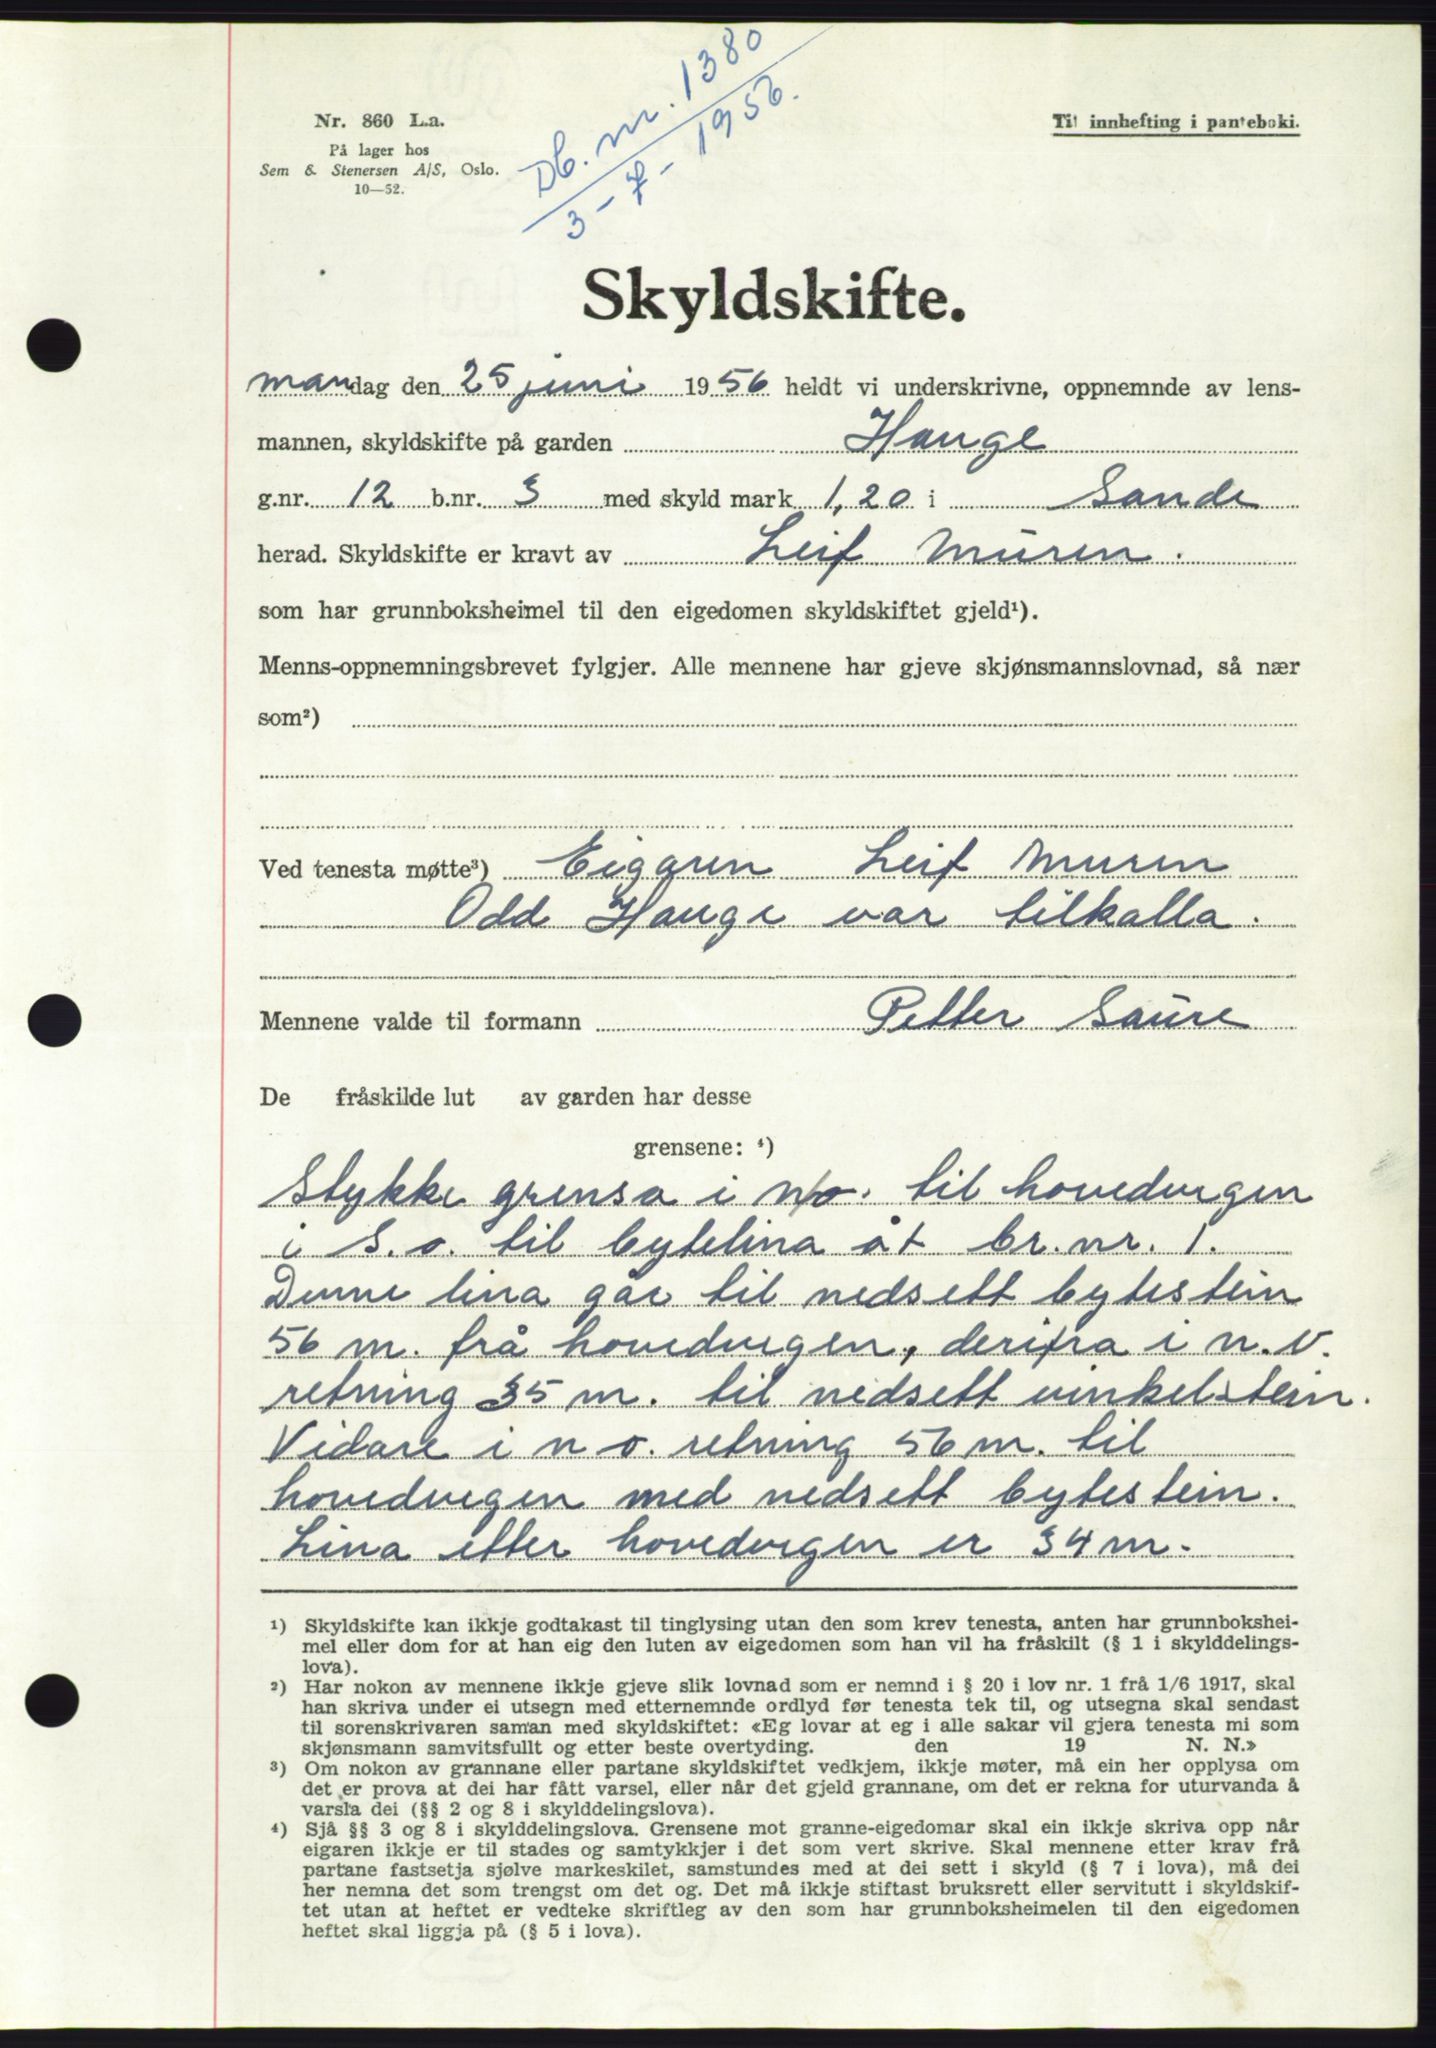 Db. nr. 1380
3 - 7 - 1956.
Nr. 860 L.a.
På lager hos
Sem & Stenersen A/S, Oslo.
10—52.
Til innhefting i panteboki.
Skyldskifte.
mandag den 25 juni 1956 heldt vi underskrivne, oppnemnde av lens-
mannen, skyldskifte på garden Hauge
g.nr. 12 b.nr. 3 med skyld mark 1,20 i Sande
herad. Skyldskifte er kravt av Leif Muren.
som har grunnboksheimel til den eigedomen skyldskiftet gjeld¹).
Menns-oppnemningsbrevet fylgjer. Alle mennene har gjeve skjønsmannslovnad, så nær
som²)
Ved tenesta møtte³) Eigaren Leif Muren
Odd Hauge var tilkalla.
Mennene valde til formann Petter Saure
De fråskilde lut av garden har desse
grensene: ⁴)
Stykke grensa i n/o. til hovedvegen
i S.o. til bytelina åt br.nr. 1.
Denne lina går til nedsett bytestein
56 m. frå hovedvegen, derifra i n.v.
retning 35 m. til nedsett vinkelstein.
Vidare i n o. retning 56 m. til
hovedvegen med nedsett bytestein.
Lina etter hovedvegen er 34 m.
¹) Skyldskifte kan ikkje godtakast til tinglysing utan den som krev tenesta, anten har grunnbokshei-
mel eller dom for at han eig den luten av eigedomen som han vil ha fråskilt (§ 1 i skylddelings-
lova).
²) Har nokon av mennene ikkje gjeve slik lovnad som er nemnd i § 20 i lov nr. 1 frå 1/6 1917, skal
han skriva under ei utsegn med etternemnde ordlyd før tenesta tek til, og utsegna skal sendast
til sorenskrivaren saman med skyldskiftet: «Eg lovar at eg i alle sakar vil gjera tenesta mi som
skjønsmann samvitsfullt og etter beste overtyding. den 19 N. N.»
³) Om nokon av grannane eller partane skyldskiftet vedkjem, ikkje møter, må ein her opplysa om
det er prova at dei har fått varsel, eller når det gjeld grannane, om det er rekna for uturvanda å
varsla dei (§§ 2 og 8 i skylddelingslova).
⁴) Sjå §§ 3 og 8 i skylddelingslova. Grensene mot granne-eigedomar skal ein ikkje skriva opp når
eigaren ikkje er til stades og samtykkjer i det som vert skrive. Skal mennene etter krav frå
partane fastsetja sjølve markeskilet, samstundes med at dei sett i skyld (§ 7 i lova), må dei
her nemna det som trengst om det og. Det må ikkje stiftast bruksrett eller servitutt i skyldskif-
tet utan at heftet er vedteke skriftleg av den som har grunnboksheimelen til den eigedomen
heftet skal liggja på (§ 5 i lova).